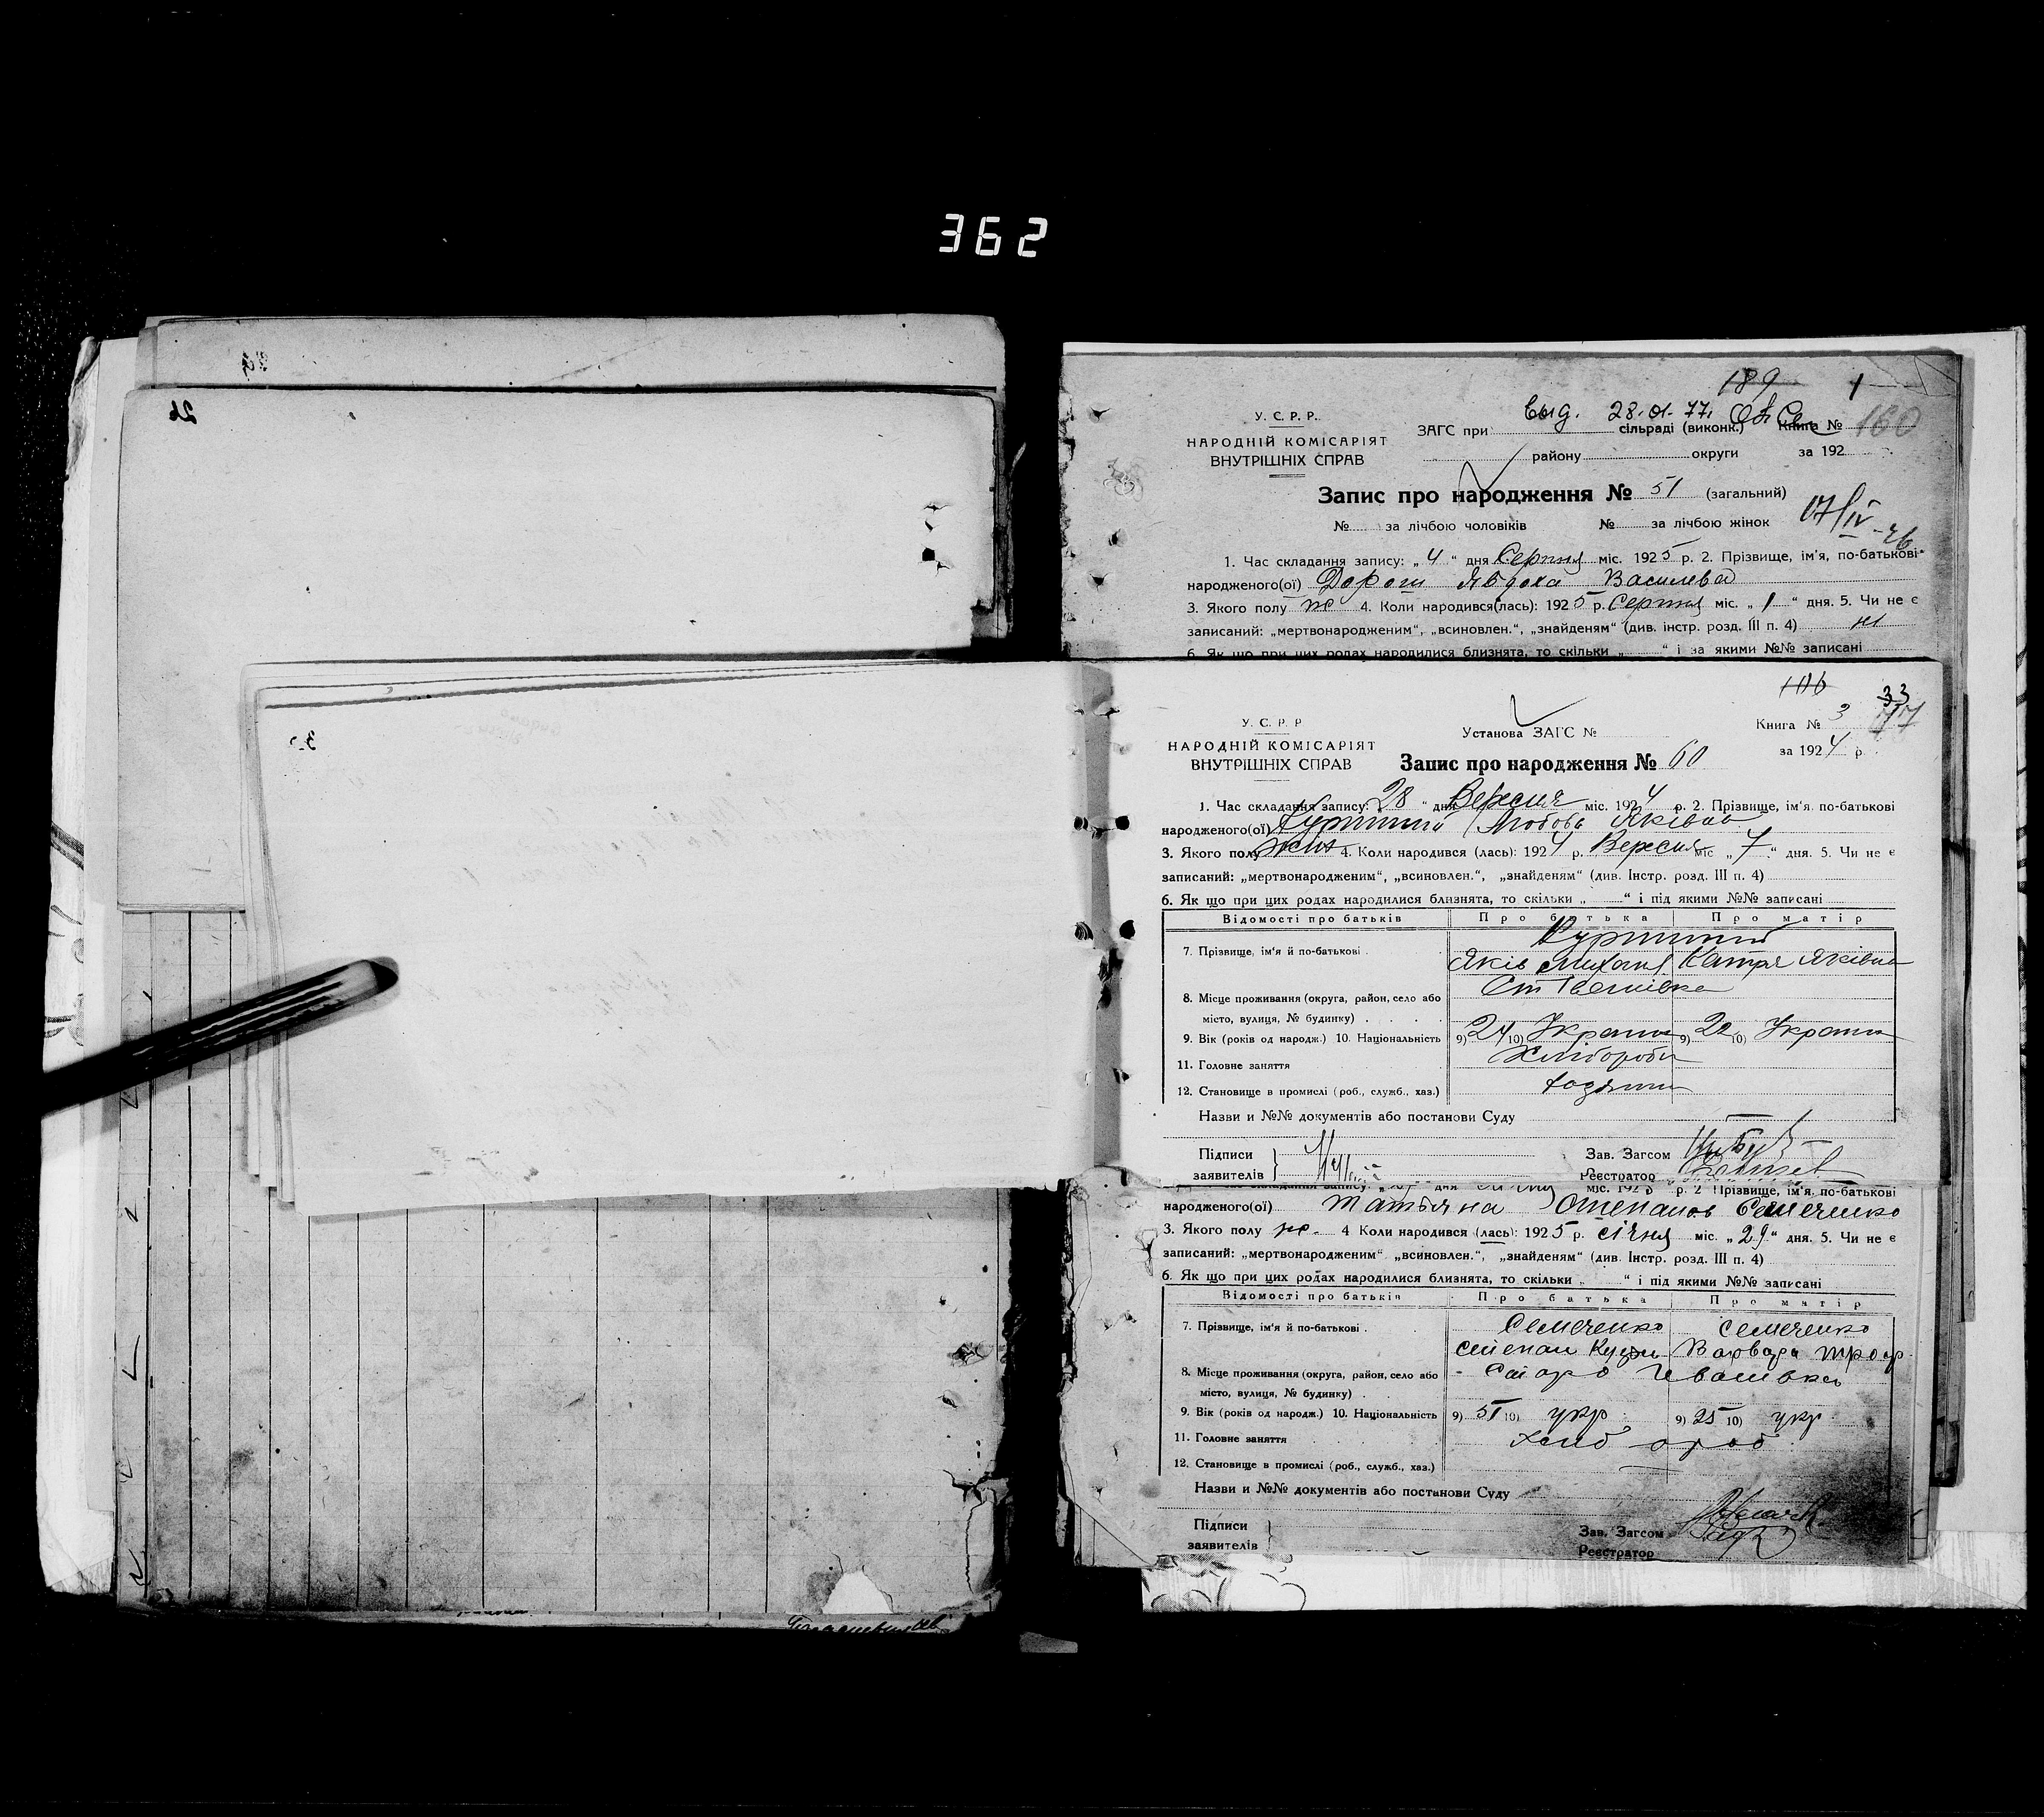 362
26
189 1
У. С. Р. Р.
НАРОДНІЙ КОМІСАРІЯТ
ВНУТРІШНІХ СПРАВ
выд. 28.01.77.
ЗАГС при сільраді (виконк.) Книга № 160
району округи за 192
Запис про народження № 51 (загальний)
№ за лічбою чоловіків № за лічбою жінок
17/IV-26
1. Час складання запису: „ 4 “ дня Серпня міс. 1925 р. 2. Прізвище, ім'я, по-батькові
народженого(ої) Дорош Явдоха Василева
3. Якого полу ж 4. Коли народився(лась): 1925 р. Серпня міс. „ 1 “ дня. 5. Чи не є
записаний: „мертвонародженим“, „всиновлен.“, „знайденям“ (див. інстр. розд. III п. 4) ні
6. Як що при цих родах народилися близнята, то скільки „ “ і за якими №№ записані
106 33
77
У. С. Р. Р.
НАРОДНІЙ КОМІСАРІЯТ
ВНУТРІШНІХ СПРАВ
Установа ЗАГС № Книга № 3
за 1924 р.
Запис про народження № 60
1. Час складання запису: 28 “ дня Вересня міс. 1924 р. 2. Прізвище, ім'я, по-батькові
народженого(ої) Любовь Яківна
3. Якого полу 4. Коли народився (лась): 1924 р. Вересня міс „ 7 “ дня. 5. Чи не є
записаний: „мертвонародженим“, „всиновлен.“, „знайденям“ (див. Інстр. розд. III п. 4)
6. Як що при цих родах народилися близнята, то скільки „ “ і під якими №№ записані
Відомості про батьків Про батька Про матір
7. Прізвище, ім'я й по-батькові
Яків Катря Яківна
8. Місце проживання (округа, район, село або
місто, вулиця, № будинку)
9. Вік (років од народж.) 10. Національність 9) 24 10) Україн 9) 22 10) Україн
11. Головне заняття Хлібороби
12. Становище в промислі (роб., служб., хаз.)
Назви и №№ документів або постанови Суду
Підписи Зав. Загсом
заявителів Реєстратор
міс. 1925 р. 2 Прізвище, ім'я, по-батькові
народженого(ої) Татьяна Степанов Семеченко
3. Якого полу ж. 4 Коли народився (лась): 1925 р. січня міс. „ 29 “ дня. 5. Чи не є
записаний: „мертвонародженим“ „всиновлен.“, „знайденям“ (див. Інстр. розд. III п. 4)
6. Як що при цих родах народилися близнята, то скільки „ “ і під якими №№ записані
Відомості про батьків Про батька Про матір
7. Прізвище, ім'я й по-батькові Семеченко Семеченко
Степан Кузьм Варвара Троф
8. Місце проживання (округа, район, село або Старо Іванівка
місто, вулиця, № будинку)
9. Вік (років од народж.) 10. Національність 9) 51 10) укр 9) 25 10) укр
11. Головне заняття хліб ороб
12. Становище в промислі (роб., служб., хаз.)
Назви и №№ документів або постанови Суду
Підписи Зав. Загсом
заявителів Реєстратор